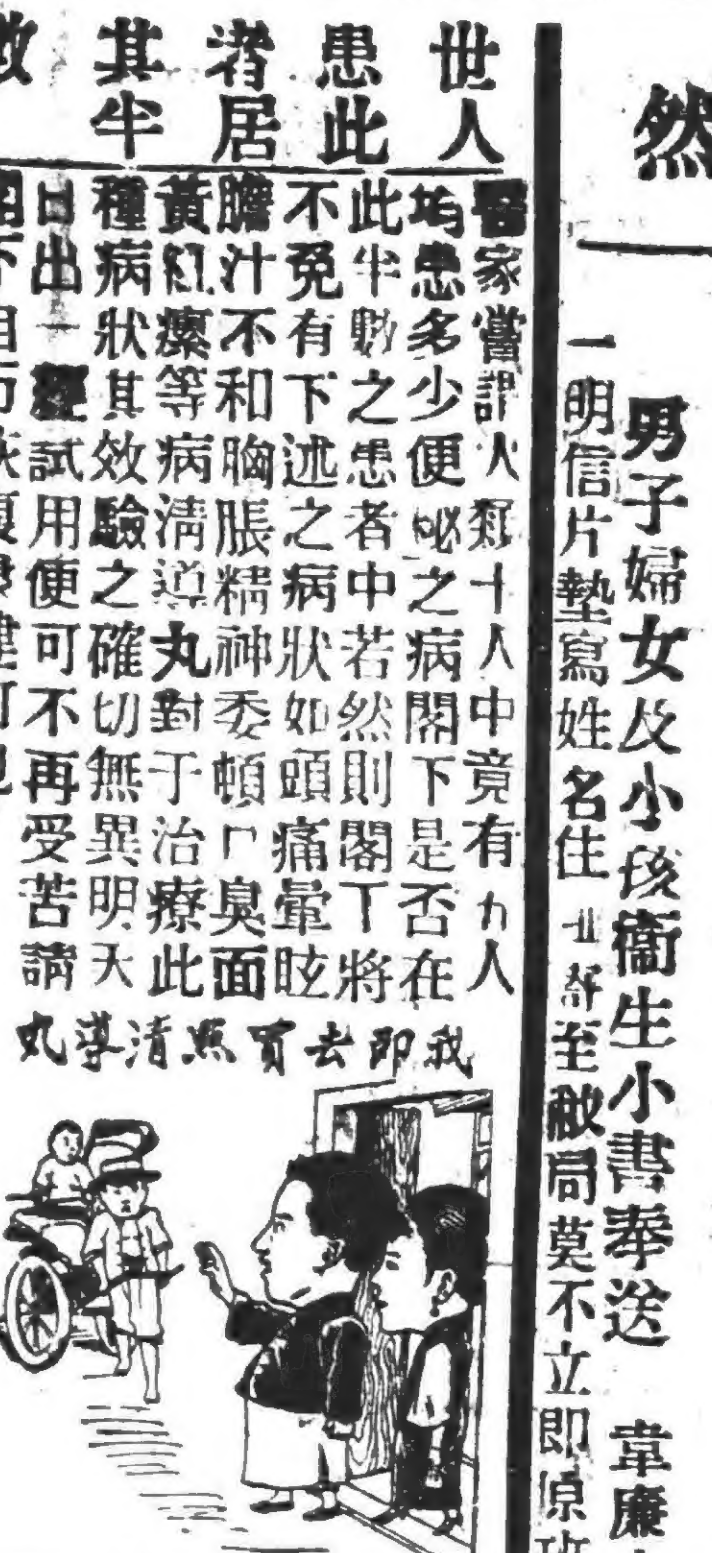 然
男子婦女及小孩衞生小書奉送 韋廉
一明信片塾寫姓名住址寄至敝局莫不立即原
世人
患此
者居
其半
醫家嘗謂人類十人中竟有九人
均患多少便秘之病閣下是否在
此半數之患者中若然則閣下將
不免有下述之病狀如頭痛暈眩
膽汁不和胸脹精神委頓口臭面
黃紅瘰等病淸導丸對于治療此
種病狀其效驗之確切無異明天
日出一經試用便可不再受苦請
我即去買點清導丸